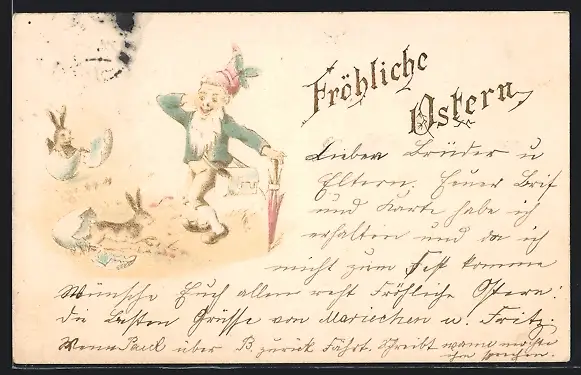 Fröhliche
Ostern
Lieben Brüder u
Eltern, Euer Brif
und Karte habe ich
erhalten und da ich
nicht zum Fest komme
Wünsche Euch allen reht Fröhliche Ostern!
die besten Grüsse von Mariechen u. Fritz.
Wenn Paul über B. zurück fährt. Schreibt wann möchte
ihn sprechen.